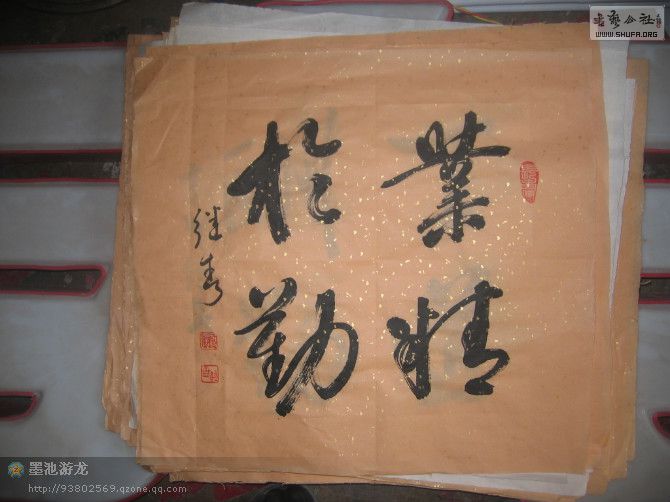 業精
於勤
继春
书艺公社
WWW.SHUFA.ORG
墨池游龙
http://93802569.qzone.qq.com